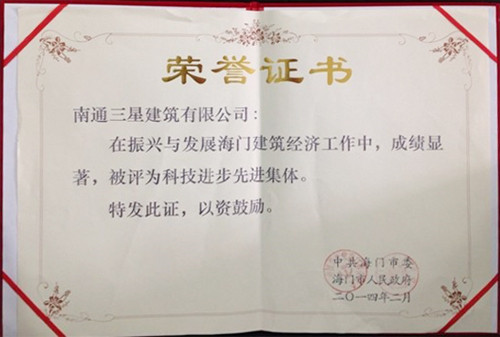 荣誉证书
南通三星建筑有限公司：
在振兴与发展海门建筑经济工作中，成绩显
著，被评为科技进步先进集体。
特发此证，以资鼓励。
中共海门市委
海门市人民政府
二〇一四年二月